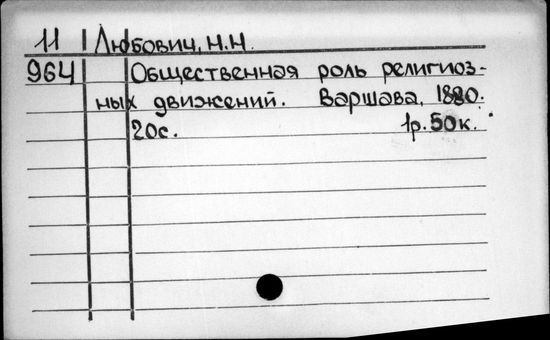 11 Любович, Н.Н.
964 Общественная роль религиоз-
ных движений. Варшава, 1880.
20с. 1р. 50к.